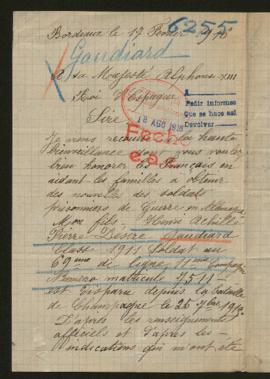 Bordeaux le 17 Février 1916
6255
Gaudiard
A Sa Majesté Alphonse XIII
Roi d'Espagne
A
Pedir informes
Que se haga así
Devolver
Sire
18 AGO 1916
Fecho
e.s.
Je viens recourir à la haute
bienveillance dont vous voulez
bien honorer les Français en
aidant les familles à obtenir
des nouvelles des soldats
prisonniers de Guerre en Allemagne
Mon fils, Henri Achille
Pierre Désiré Gaudiard
classe 1911 Soldat au
69ème de ligne 11ème Compagnie
Numéro matricule 7511
est disparu depuis la bataille
de Champagne le 25 7bre 1915.
D'après les renseignements
officiels et d'après les
indications qui m'ont été